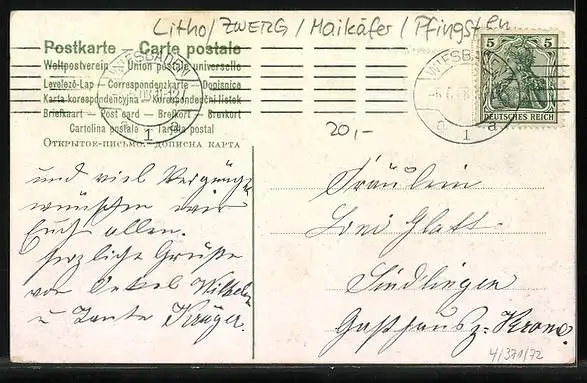 Litho/ZWERG/Maikäfer/Pfingsten
Postkarte – Carte postale
Weltpostverein – Union postale universelle
Levelező-Lap – Correspondenzkarte – Dopisnica
Karta korespondencyjna – Korespondenční lístek
Briefkaart – Post card – Brefkort – Brevkort
Cartolina postale – Tarjeta postal
Открытое-письмо. Дописна карта
WIESBADEN
1
a a
WIESBADEN
1
a a
5 5
DEUTSCHES REICH
20,-
und viel Vergnüg
wünschen wir
Euch allen.
herzliche Grüße
von Onkel Wilhelm
u Tante Krüger.
Fräulein
Loni Glatt
Sindlingen
Gasthaus z. Krone
4/371/72